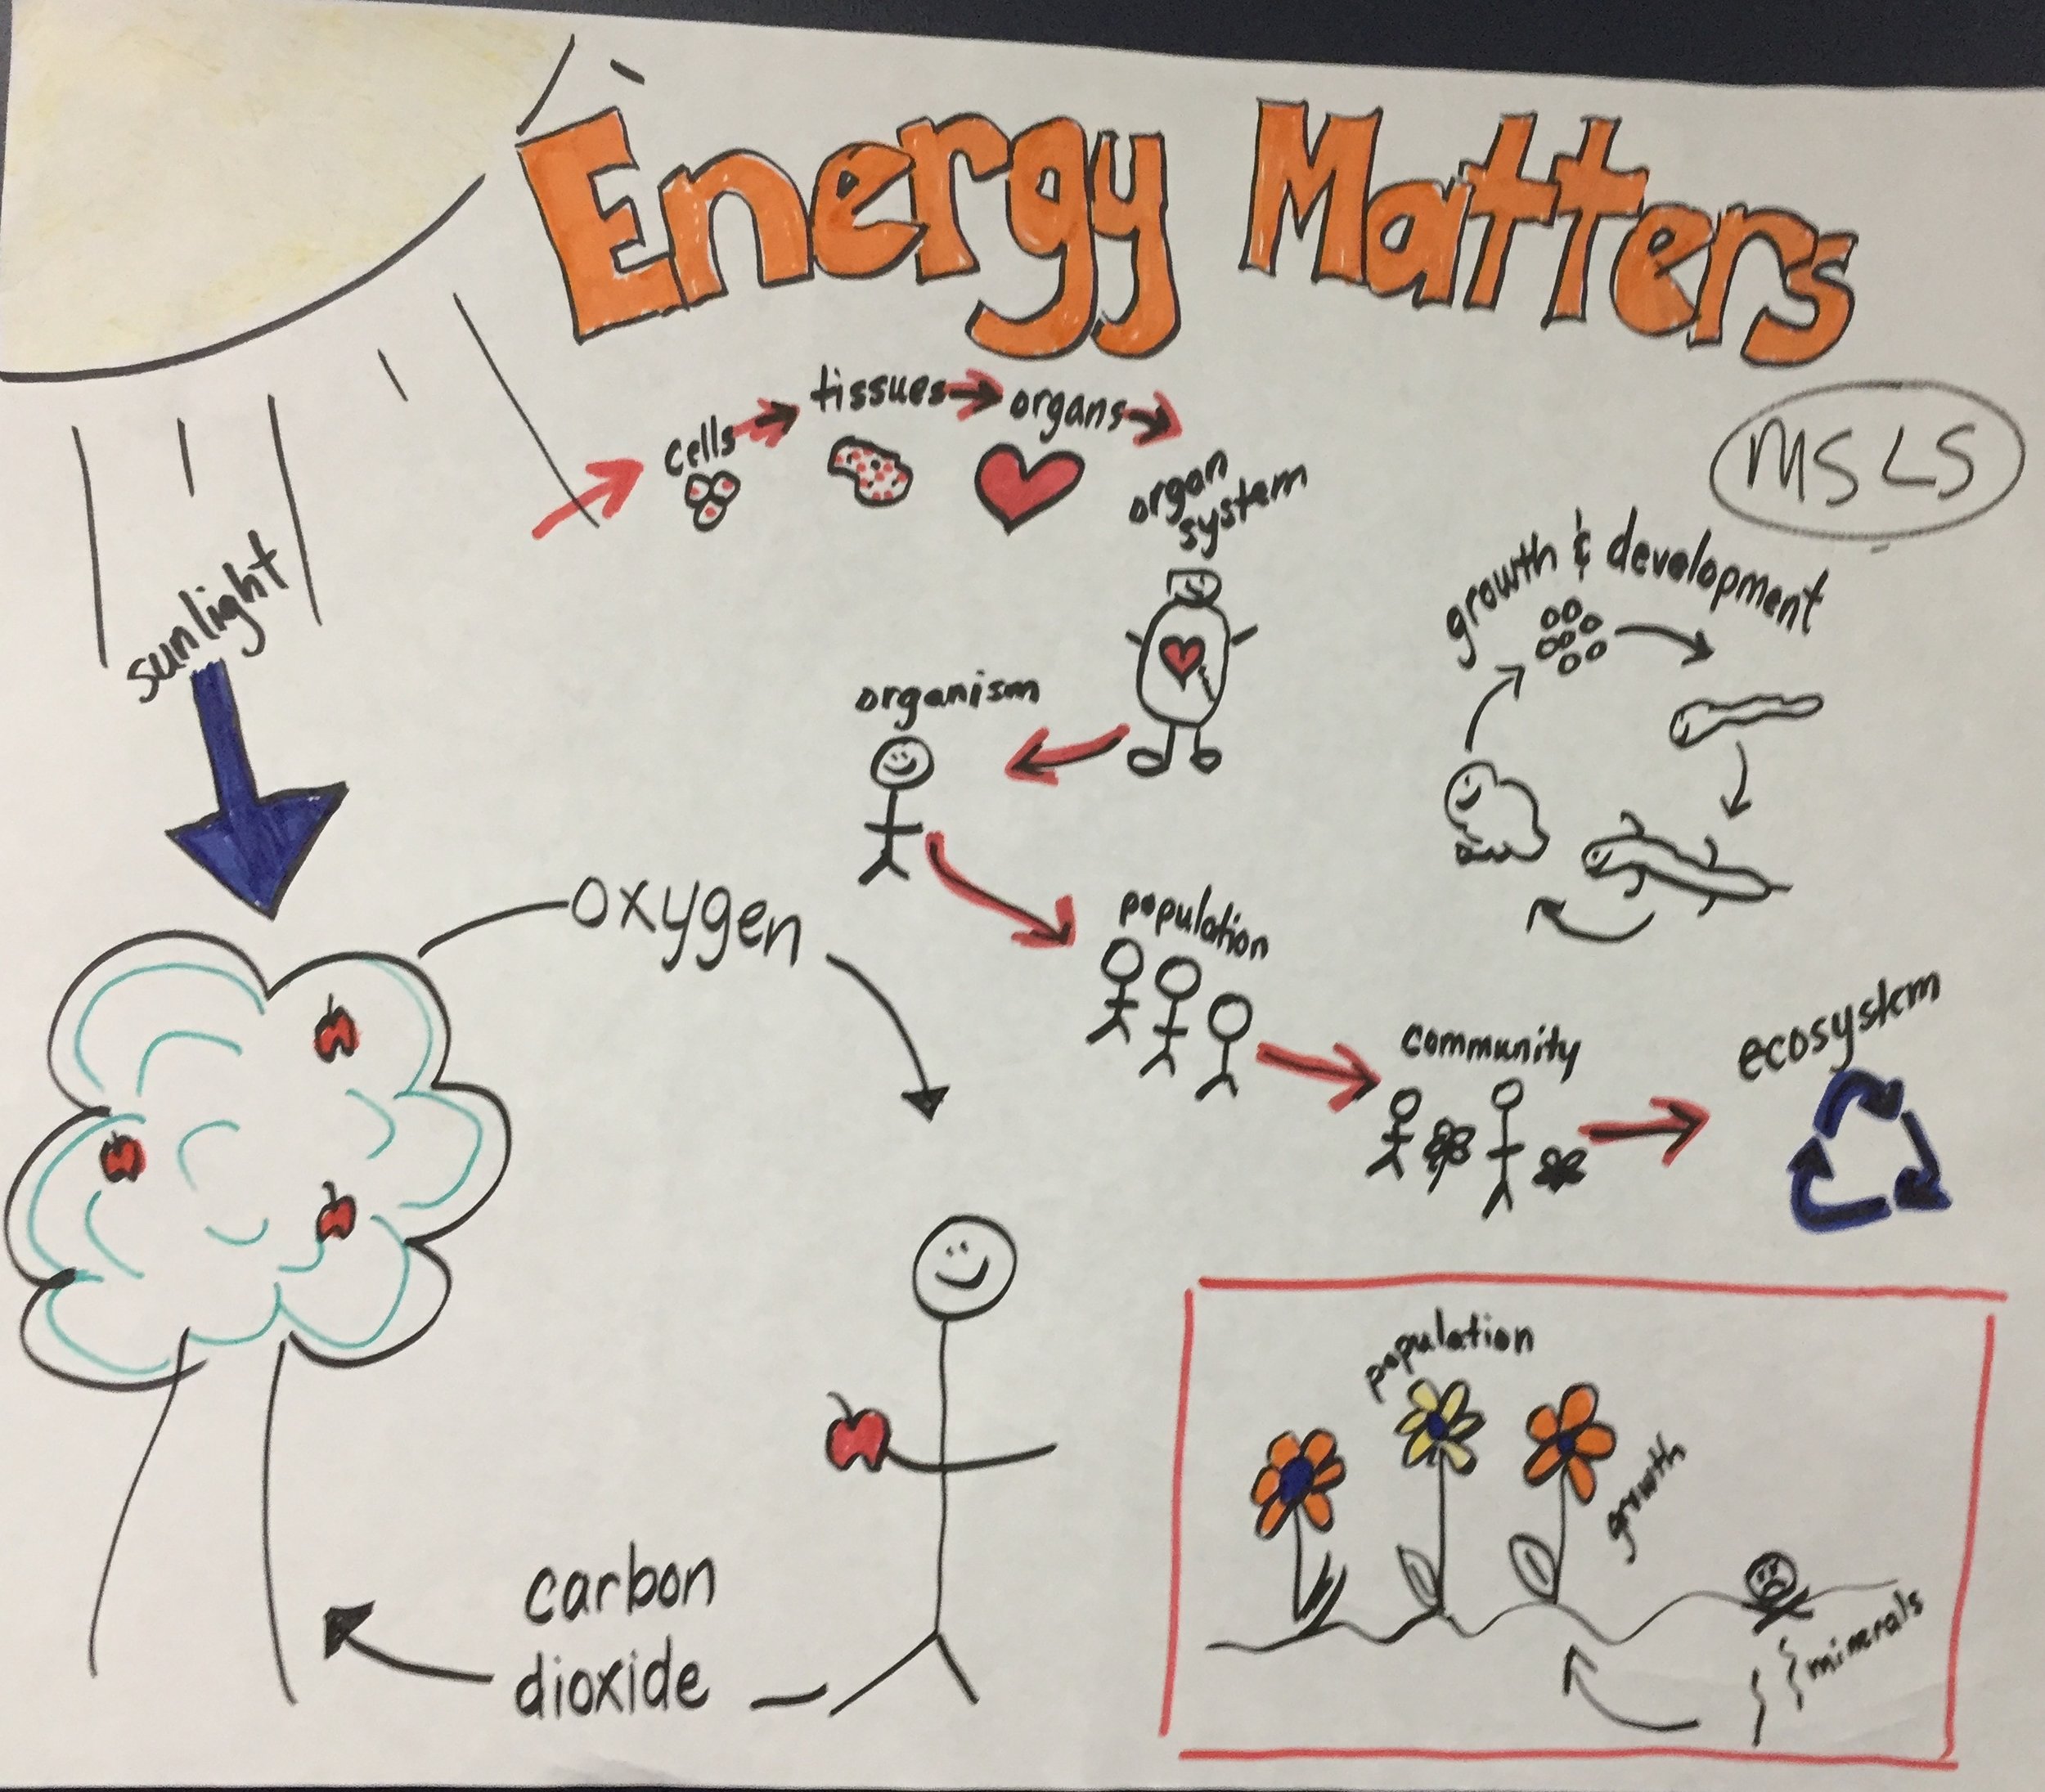 Energy Matters
MSLS
cells
tissues
organs
organ
system
organism
population
community
ecosystem
growth & development
sunlight
oxygen
carbon
dioxide
population
growth
minerals